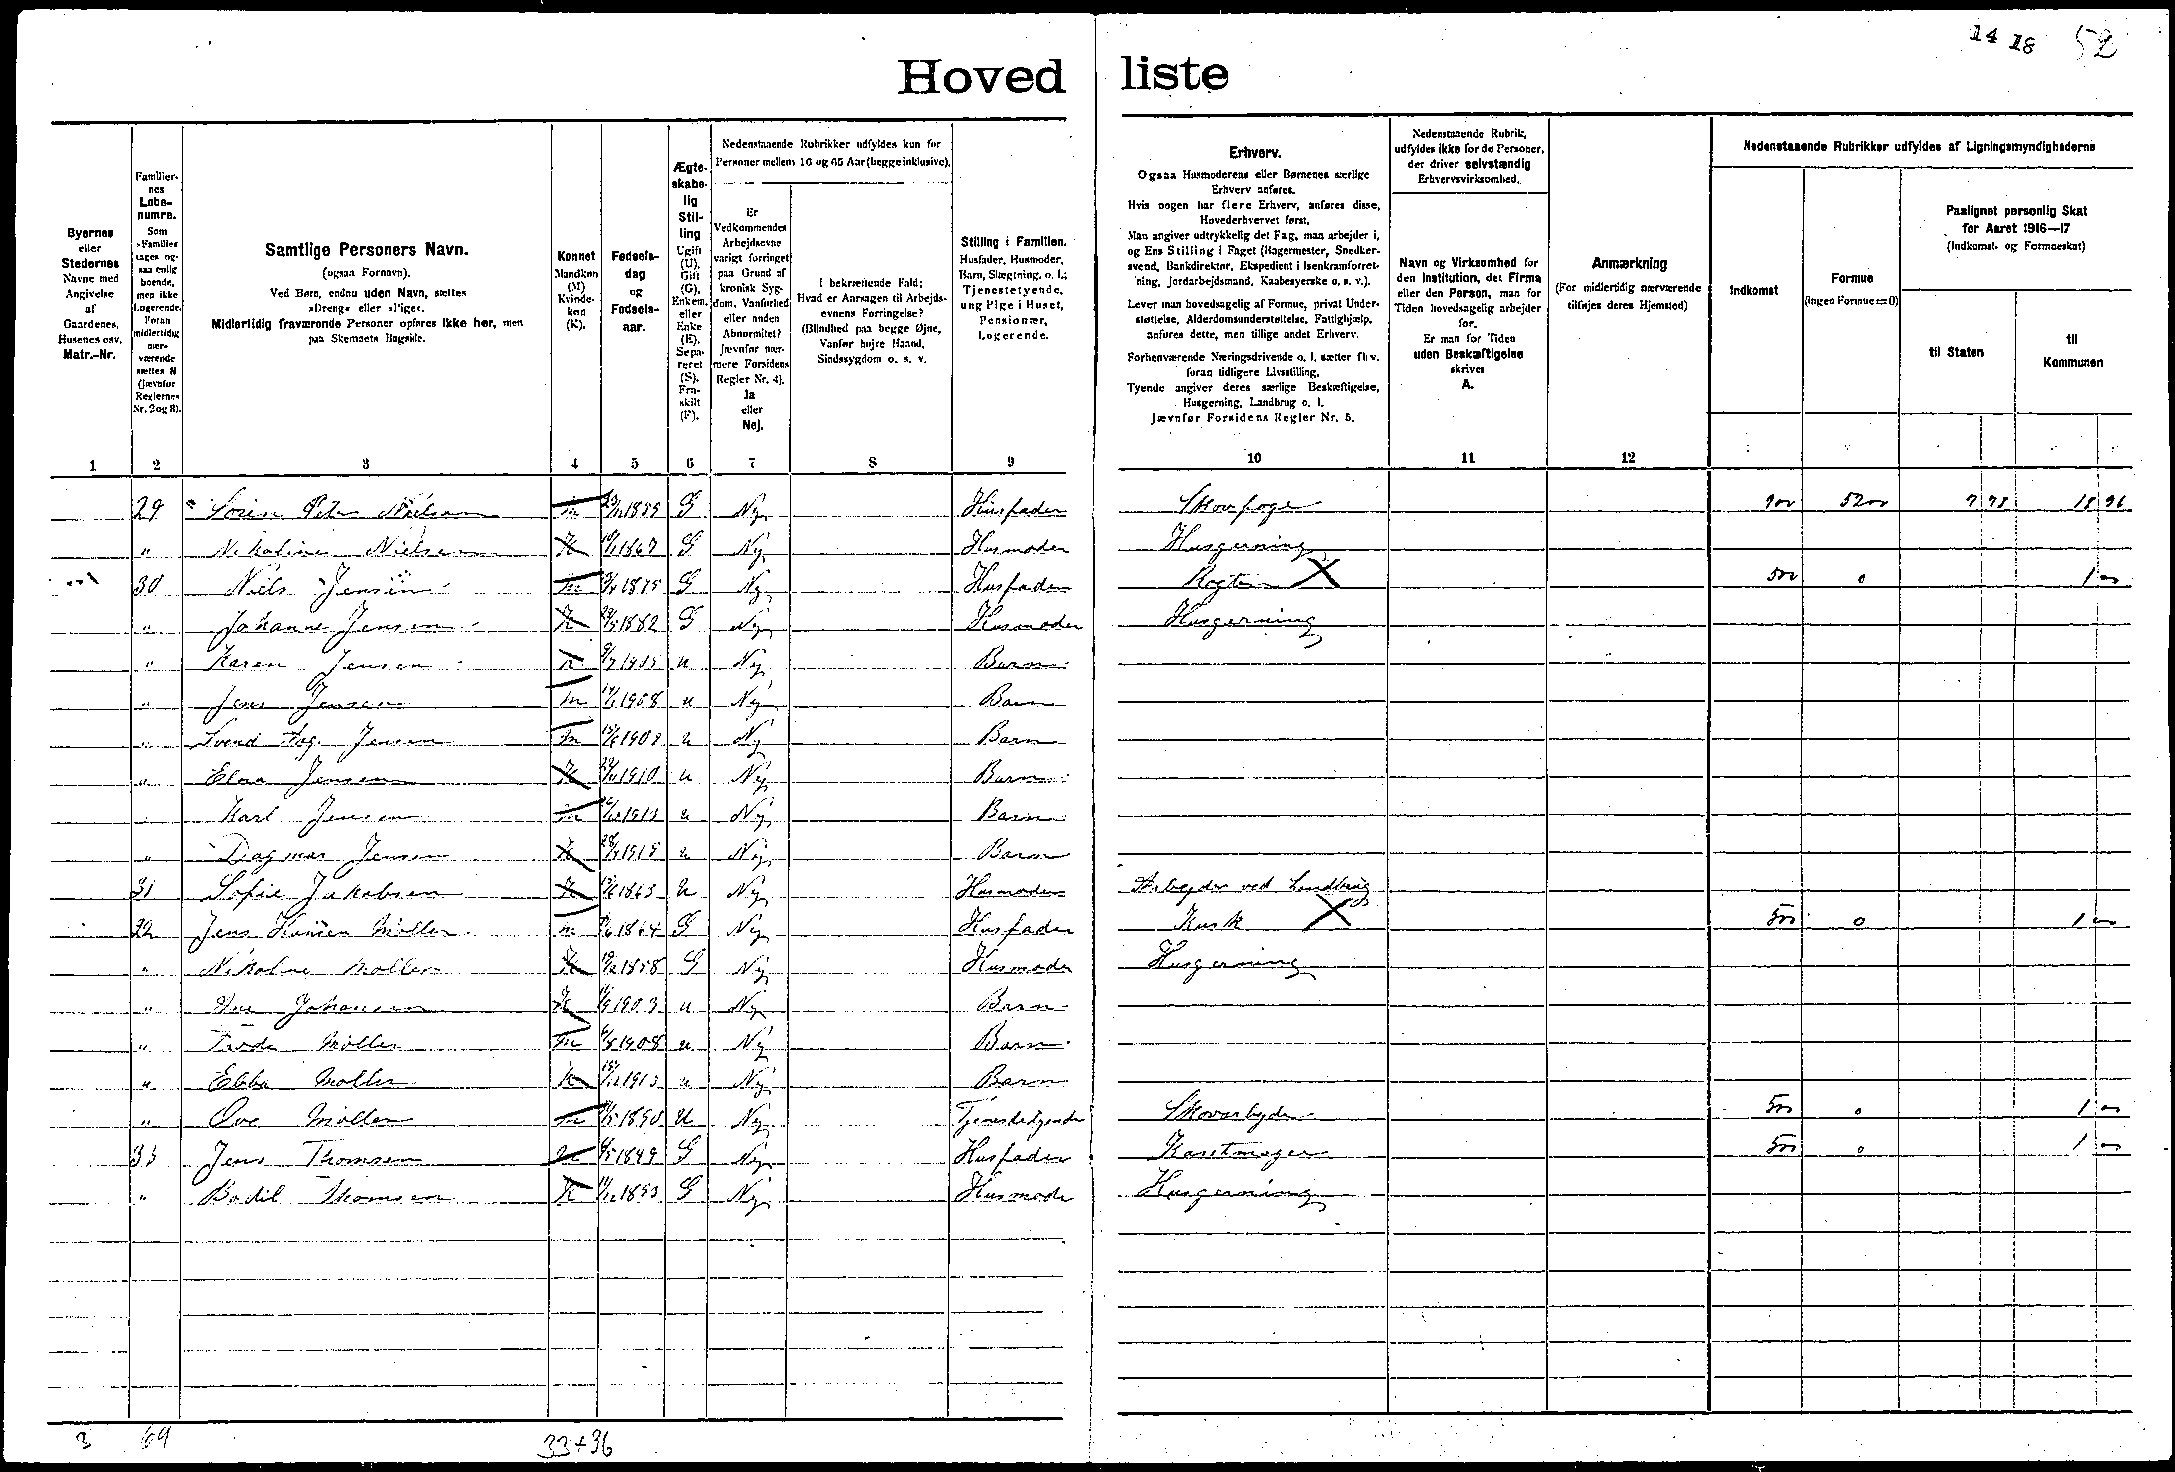 14 18 52
Hoved liste
Byernes eller Stedernes Navne med Angivelse af Gaardenes, Husenes osv. Matr.-Nr.
Familiernes Løbenumre. Som »Familie« tages ogsaa enlig boende, men ikke Logerende. Foran midlertidig nærværende sættes N (Jævnfør Reglernes Nr. 2 og 8).
Samtlige Personers Navn.
(ogsaa Fornavn).
Ved Børn, endnu uden Navn, sættes
»Dreng« eller »Pige«.
Midlertidig fraværende Personer opføres ikke her, men
paa Skemaets Bagside.
Kønnet Mandkøn (M) Kvindekøn (K).
Fødselsdag og Fødselsaar.
Ægteskabelig Stilling Ugift (U). Gift (G). Enkem. eller Enke (E). Separeret (S). Fraskilt (F).
Nedenstaaende Rubrikker udfyldes kun for
Personer mellem 16 og 65 Aar (begge inklusive).
Er Vedkommendes Arbejdsevne varigt forringet paa Grund af kronisk Sygdom, Vanførhed eller anden Abnormitet? Jævnfør nærmere Forsidens Regler Nr. 4). Ja eller Nej.
I bekræftende Fald: Hvad er Aarsagen til Arbejdsevnens Forringelse? (Blindhed paa begge Øjne, Vanfør højre Haand, Sindssygdom o. s. v.
Stilling i Familien. Husfader, Husmoder, Barn, Slægtning, o. l.; Tjenestetyende, ung Pige i Huset, Pensionær, Logerende.
Erhverv.
Ogsaa Husmoderens eller Børnenes særlige
Erhverv anføres.
Hvis nogen har flere Erhverv, anføres disse,
Hovederhvervet først.
Man angiver udtrykkelig det Fag, man arbejder i,
og Ens Stilling i Faget (Bagermester, Snedkersvend, Bankdirektør, Ekspedient i Isenkramforretning, Jordarbejdsmand, Kaabesyerske o. s. v.).
Lever man hovedsagelig af Formue, privat Understøttelse, Alderdomsunderstøttelse, Fattighjælp,
anføres dette, men tillige andet Erhverv.
Forhenværende Næringsdrivende o. l. sætter fhv.
foran tidligere Livsstilling.
Tyende angiver deres særlige Beskæftigelse,
Husgerning, Landbrug o. l.
Jævnfør Forsidens Regler Nr. 5.
Nedenstaaende Rubrik,
udfyldes ikke for de Personer,
der driver selvstændig
Erhvervsvirksomhed.
Navn og Virksomhed for
den Institution, det Firma
eller den Person, man for
Tiden hovedsagelig arbejder
for.
Er man for Tiden
uden Beskæftigelse
skrives
A.
Anmærkning
(For midlertidig nærværende
tilføjes deres Hjemsted)
Nedenstaaende Rubrikker udfyldes af Ligningsmyndighederne
Indkomst
Formue
(ingen Formue = 0)
Paalignet personlig Skat
for Aaret 1916—17
(Indkomst- og Formueskat)
til Staten
til Kommunen
1 2 3 4 5 6 7 8 9 10 11 12
29 Søren Peter Nielsen m 1859 G Nej Husfader Skovfoged 900 5200 18 96
" Nikoline Nielsen K 1867 G Nej Husmoder Husgerning
30 Niels Jensen m 1875 G Nej Husfader Røgter X 500 0 1 00
" Johanne Jensen K 1882 G Nej Husmoder Husgerning
" Karen Jensen K 1905 u Nej Barn
" Jens Jensen m 1908 u Nej Barn
" Svend Aag. Jensen m u Nej Barn
" Elna Jensen K 1910 u Nej Barn
Karl Jensen m 1913 u Nej Barn
" Dagmar Jensen K 1915 u Nej Barn
31 Sofie Jakobsen K 1863 U Nej Husmoder Arbejder ved Landbrug
32 Jens Hansen Møller m 1864 G Nej Husfader Kusk X 500 0 1 00
" Nikoline Møller K 1858 G Nej Husmoder Husgerning
" Johansen K 1903 u Nej Barn
" Frode Møller m 1908 u Nej Barn
" Ebba Møller K 1913 u Nej Barn
" Ove Møller m 1890 U Nej Tjenestetyende Skovarbejder 500 0 1 00
33 Jens Thomsen m 1849 G Nej Husfader Karetmager 500 0 1 00
" Bodil Thomsen K 1853 G Nej Husmoder Husgerning
3 69 33+36